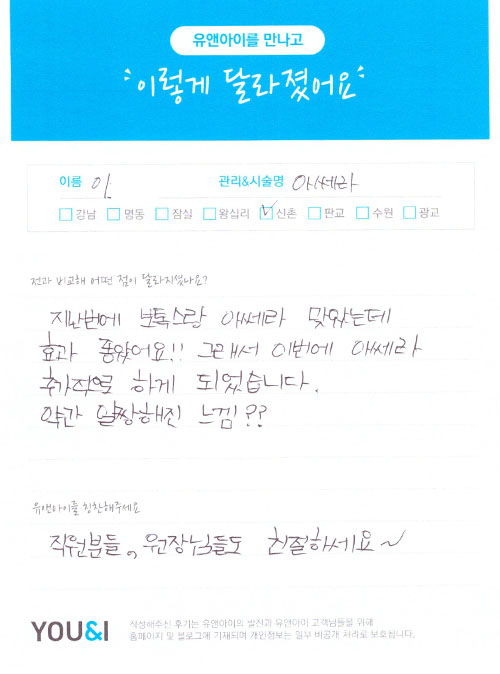 유앤아이를 만나고
이렇게 달라졌어요
이름 이 관리&시술명 아쎄라
강남 명동 잠실 왕십리 신촌 판교 수원 광교
전과 비교해 어떤 점이 달라지셨나요?
지난번에 보톡스랑 아쎄라 맞았는데
효과 좋았어요!! 그래서 이번에 아쎄라
추가적으로 하게 되었습니다.
약간 얄쌍해진 느낌??
유앤아이를 칭찬해주세요
직원분들, 원장님들도 친절하세요~
YOU&I
작성해주신 후기는 유앤아이의 발전과 유앤아이 고객님들을 위해
홈페이지 및 블로그에 기재되며 개인정보는 일부 비공개 처리로 보호됩니다.